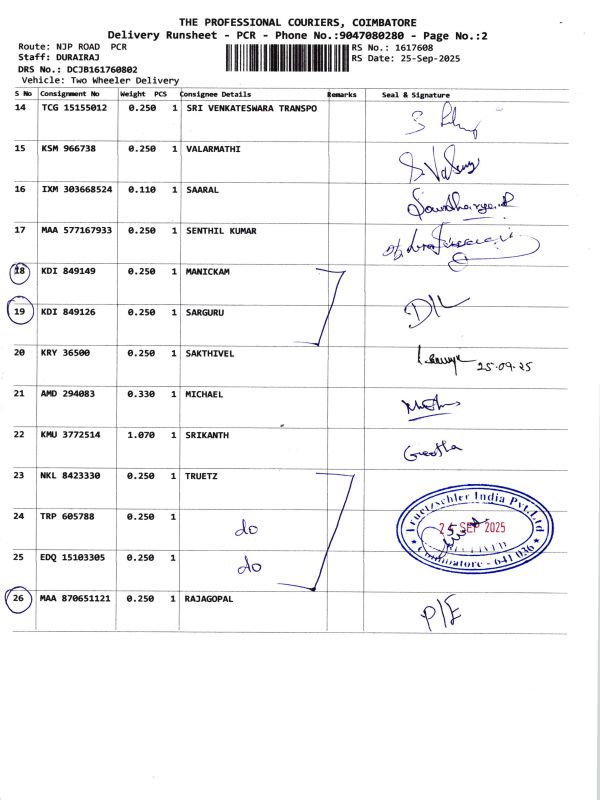 THE PROFESSIONAL COURIERS, COIMBATORE
Delivery Runsheet - PCR - Phone No.:9047080280 - Page No.:2
Route: NJP ROAD PCR RS No.: 1617608
Staff: DURAIRAJ RS Date: 25-Sep-2025
DRS No.: DCJB161760802
Vehicle: Two Wheeler Delivery
S No Consignment No Weight PCS Consignee Details Remarks Seal & Signature
14 TCG 15155012 0.250 1 SRI VENKATESWARA TRANSPO
15 KSM 966738 0.250 1 VALARMATHI
16 IXM 303668524 0.110 1 SAARAL
17 MAA 577167933 0.250 1 SENTHIL KUMAR
18 KDI 849149 0.250 1 MANICKAM
19 KDI 849126 0.250 1 SARGURU D/L
20 KRY 36500 0.250 1 SAKTHIVEL 25.09.25
21 AMD 294083 0.330 1 MICHAEL
22 KMU 3772514 1.070 1 SRIKANTH Geetha
23 NKL 8423330 0.250 1 TRUETZ
Truetzschler India Pvt.Ltd
24 TRP 605788 0.250 1 do
25 SEP 2025
RECEIVED
25 EDQ 15103305 0.250 1 do
Coimbatore - 641 036
26 MAA 870651121 0.250 1 RAJAGOPAL